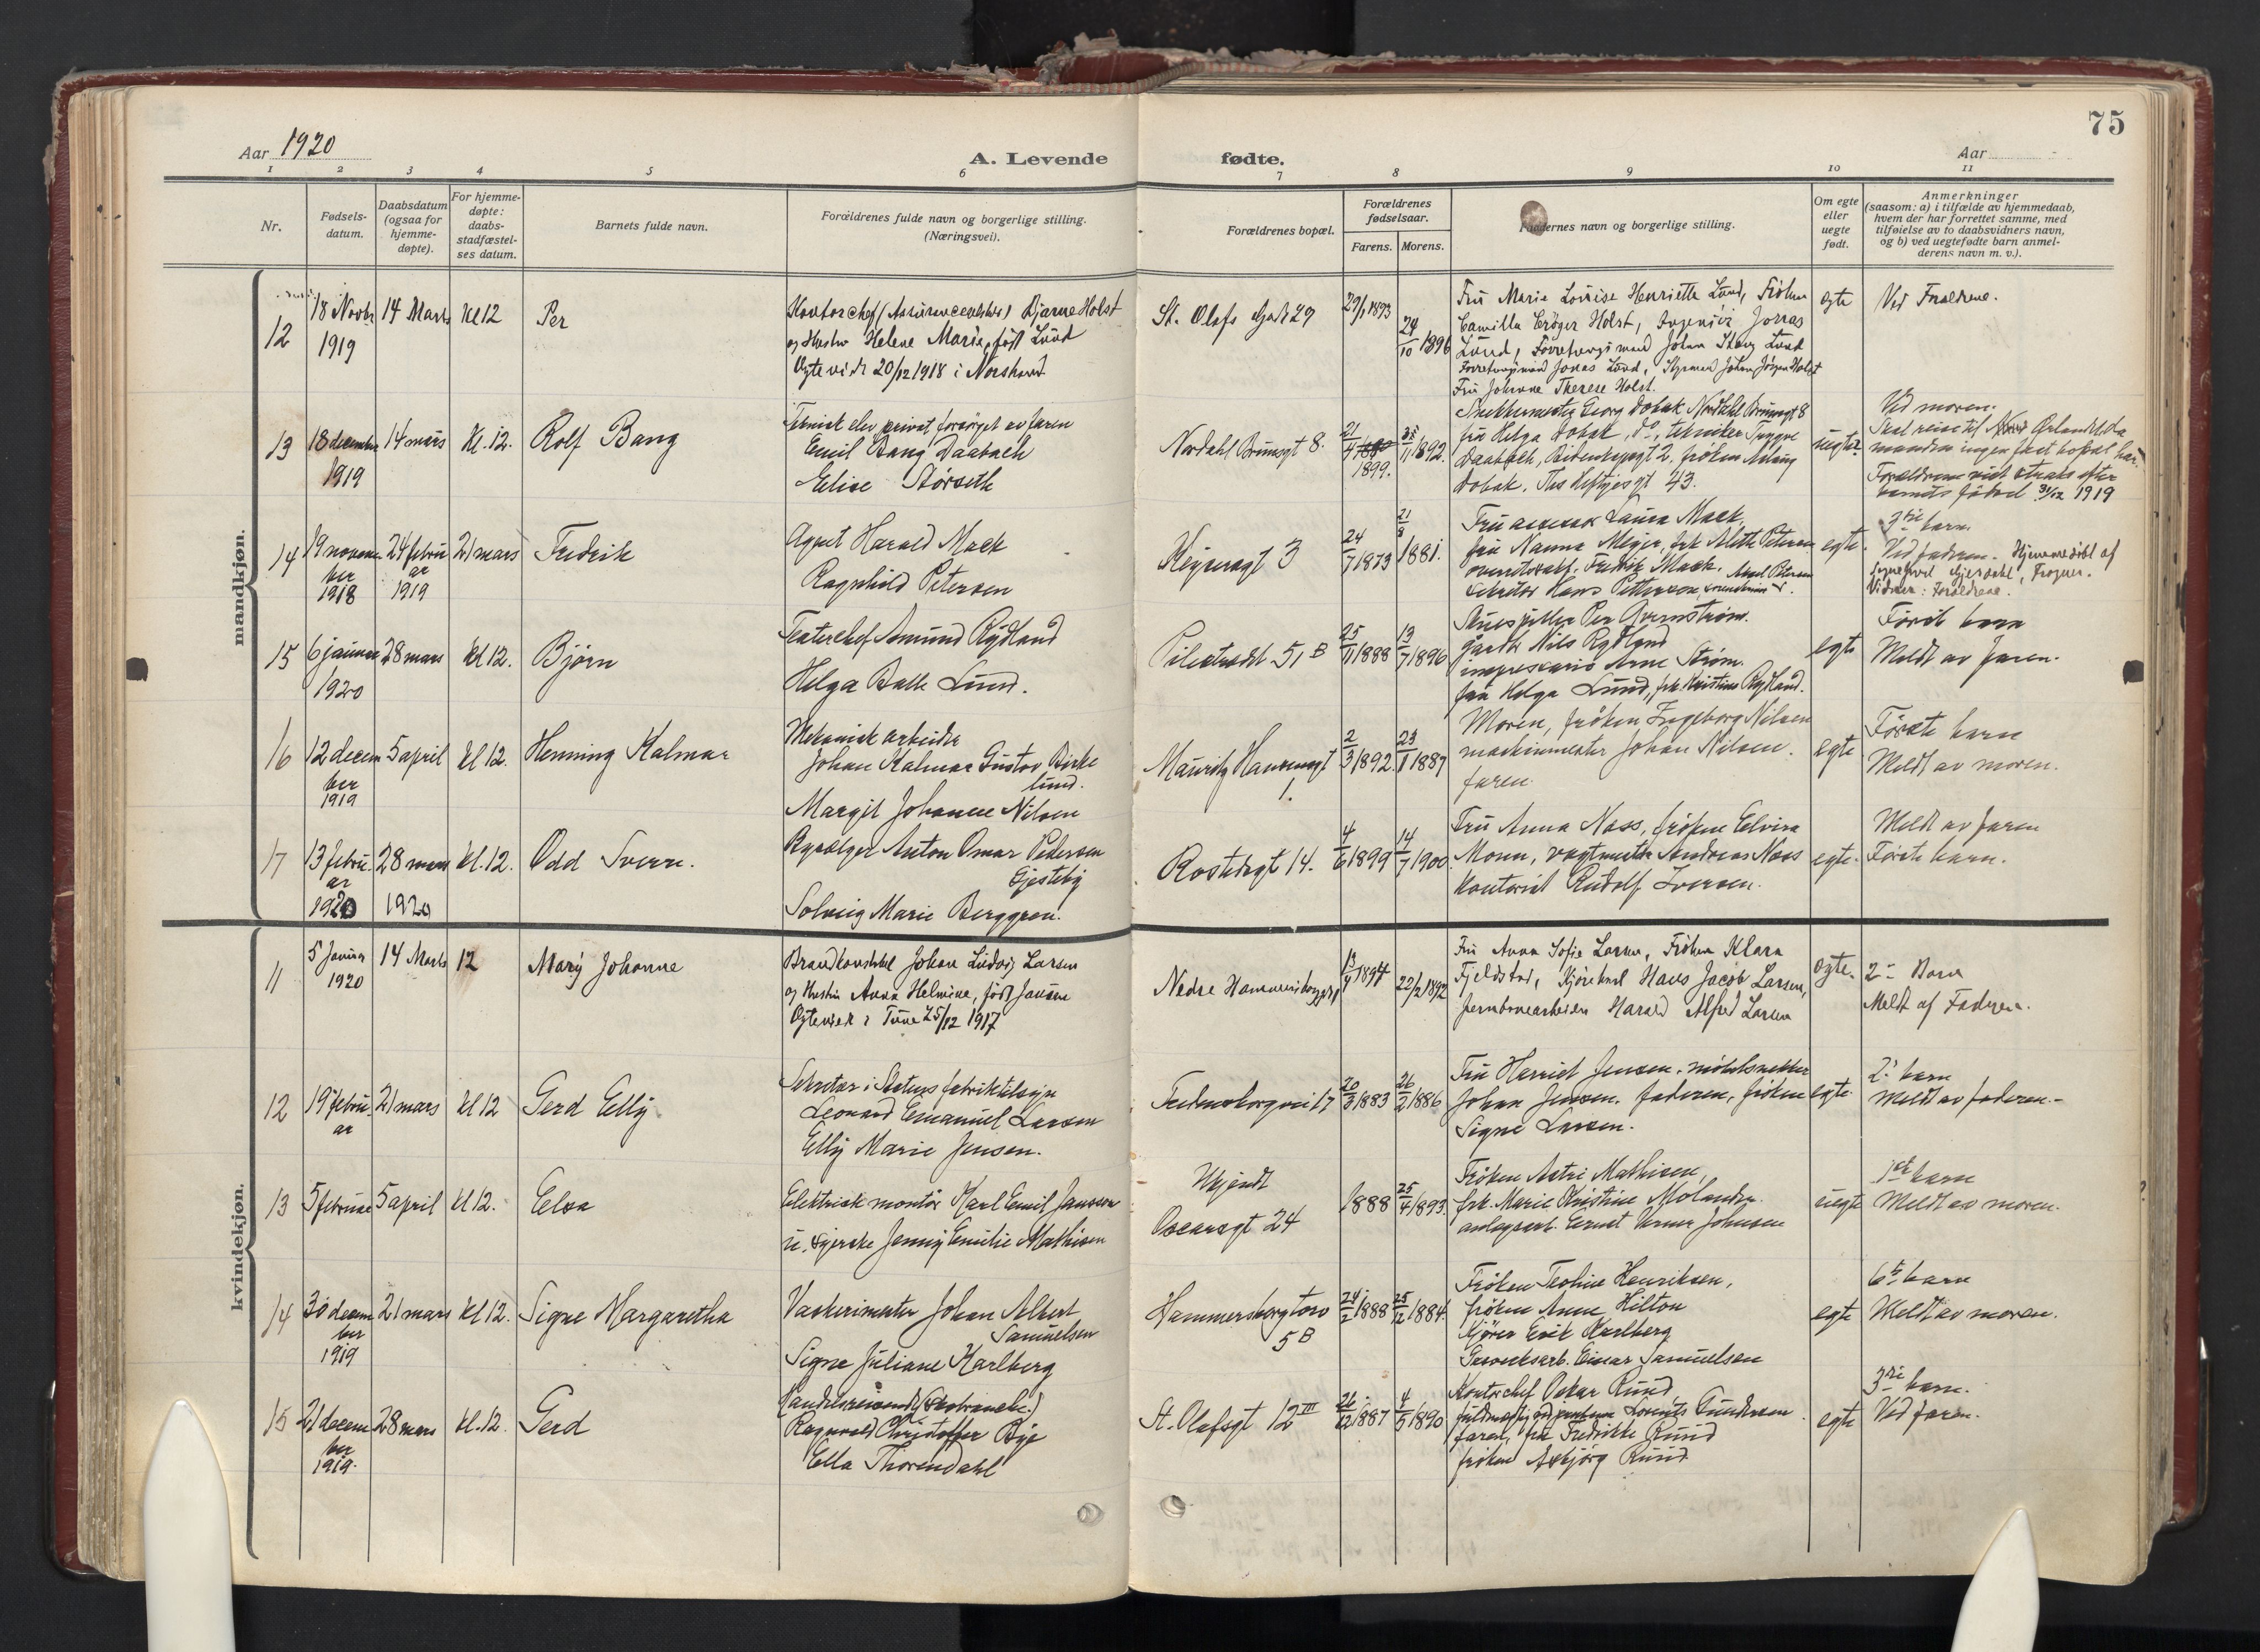 75
Aar 1920
A. Levende
fødte.
Aar
1 2 3 4 5 6 7 8 9 10 11
Nr.
Fødsels-
datum.
Daabsdatum
(ogsaa for
hjemme-
døpte).
For hjemme-
døpte:
daabs-
stadfæstel-
ses datum.
Barnets fulde navn.
Forældrenes fulde navn og borgerlige stilling.
(Næringsvei).
Forældrenes bopæl.
Forældrenes
fødselsaar.
Farens. Morens.
Faddernes navn og borgerlige stilling.
Om egte
eller
uegte
født.
Anmerkninger
(saasom: a) i tilfælde av hjemmedaab,
hvem der har forrettet samme, med
tilføielse av to daabsvidners navn,
og b) ved uegtefødte barn anmel-
derens navn m. v.).
mandkjøn.
12
18 Novbr
1919
14 Marts
Kl 12
Per
Kontorchef Bjarne Holst
og Hustru Helene Marie, født Lund
Egteviede 20/12 1918 i
St. Olafs Gade 29
29/1 1893
24/10 1896
Fru Marie Louise Henriette Lund, Frøken
Camilla Crøger Holst, Ingeniør Jonas
Lund, Forretningsmand Johan Lund
Forretningsmand Jonas Lund, Johan Jörgen Holst
Fru Johanne Therese Holst.
egte
Ved Forældrene.
13
18 december
1919
14 mars
Kl. 12.
Rolf Bang
Teknisk elev privat, forsörget av faren
Emil Bang Daabach
Elise Størseth
Nordahl Brunsgt 8.
21/4 1899.
11/1892.
Georg Dobak, Nordahl Brunsgt 8
fru Helga Dobak, do, tekniker Trygve
frøken
Dobak, Ths Heftyes gt 43.
uegte.
Ved moren.
Skal reise til
ingen fast bopæl har.
Forældrene viet straks efter
barnets födsel 31/12 1919
14
19 novem
ber
1918
24 febru
ar
1919
21 mars
Fredrik
Agent Harald Mack
Ragnhild Petersen
Keysersgt 3
24/7 1873
21/8 1881.
Fru assessor Laura Mack,
fru Nanna Meyer, frk Petersen
Fredrik Mack, Petersen
Hans Pettersen
egte.
3die barn
Ved faderen. Hjemmedöbt af
Frogner.
Vidner: Forældrene.
15
6 januar
1920
28 mars
kl 12.
Bjørn
Teaterchef Amund Rydland
Helga Balle Lund.
Pilestredt 51 B
25/11 1888
13/7 1896
Skuespiller Per Qvernstrøm.
Nils Rydland
impressario Arne Strøm.
fru Helga Lund, frk Kristine Rydland.
egte
Første barn
Meldt av faren.
16
12 decem
ber
1919
5 april
kl 12.
Henning Kalmar
Mekanisk arbeider
Johan Kalmar Gustav Birke
lund.
Margit Johanne Nilsen
Mauritz Hansensgt
1.
2/3 1892.
23/1 1887
Moren, frøken Ingeborg Nilsen
maskinmester Johan Nilsen.
faren.
egte
Første barn
Meldt av moren.
17
13 febru
ar
1920
28 mars
1920
kl. 12.
Odd Sverre.
Anton Omar Pedersen
Gjesteby
Solveig Marie Berggren.
Rostedsgt 14.
4/6 1899
14/7 1900.
Fru Anna Næss, frøken Elvira
Monn, vagtmester Andreas Næss
Kontorist Rudolf Iversen.
egte.
Meldt av faren
Første barn.
kvindekjøn.
11
5 Januar
1920
14 Marts
12
Mary Johanne
Brandkonstabel Johan Ludvig Larsen
og Hustru Anna Helmine, født Jansen
Egteviet i Tune 25/12 1917
Nedre Hammersborggt
13/4 1894
22/2 1892
Fru Anna Sofie Larsen, Frøken Klara
Fjeldstad, Kjørekarl Hans Jacob Larsen,
jernbanearbeider Harald Alfred Larsen
Egte.
2 Barn
Meldt af Faderen.
12
19 febru
ar
21 mars
kl 12
Gerd Elly
Sekretær i Statens fabriktilsyn
Leonard Emanuel Larsen
Elly Marie Jensen.
Fredensborgvei 17
20/3 1883
26/2 1886
Fru Harriet Jensen, møbelsnekker
Johan Jensen. faderen, frøken
Signe Larsen.
egte
2' barn
Meldt av faderen.
13
5 februar
5 april
kl 12.
Elsa
Elektrisk montør Karl Emil Janssen
u. syerske Jenny Emilie Mathisen
Ukjendt
Oscarsgt 24
1888
25/4 1893.
Frøken Astri Mathisen,
frk. Marie Kristine Molander.
anlegsarb. Ernst Verner Johnsen
uegte
1ste barn
Meldt av moren.
14
30 decem
ber
1919
21 mars
kl 12.
Signe Margaretha
Vaskerimester Johan Albert
Samuelsen
Signe Juliane Karlberg
Hammersborg torv
5 B
24/2 1888
25/12 1884.
Frøken Teoline Henriksen,
frøken Anna Hilton
Kjører Erik Karlberg
Einar Samuelsen
egte
6te barn
Meldt av moren.
15
21 decem
ber
1919.
28 mars
kl. 12.
Gerd
Handelsreisende (Skobranche.)
Ragnvald Christoffer Bye
Ella Thorendahl
St. Olafsgt 12 III
26/12 1887
4/5 1890
Kontorchef Oskar Ruud,
Gundersen
faren, fru Fredrikke Ruud
frøken Asbjørg Ruud
egte
3die barn.
Ved faren.